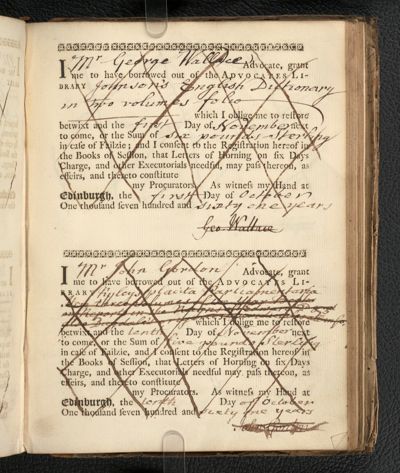 I Mr George Wallace Advocate, grant
me to have borrowed out of the ADVOCATES LI-
BRARY Johnson's English Dictionary
in two volumes folio
which I oblige me to restore
betwixt and the first Day of November next
to come, or the Sum of six pounds sterling
in case of Failzie; and I consent to the Registration hereof in
the Books of Session, that Letters of Horning on six Days
Charge, and other Executorials needful, may pass thereon, as
effeirs, and thereto constitute
my Procurators. As witness my Hand at
Edinburgh, the first Day of October
One thousand seven hundred and sixty one years
Geo. Wallace
I Mr John Gordon Advocate, grant
me to have borrowed out of the ADVOCATES LI-
BRARY Ryleys Placita Parliamentaria
which I oblige me to restore
betwixt and the tenth Day of November next
to come, or the Sum of five pounds Sterling
in case of Failzie; and I consent to the Registration hereof in
the Books of Session, that Letters of Horning on six Days
Charge, and other Executorials needful may pass thereon, as
effeirs, and thereto constitute
my Procurators. As witness my Hand at
Edinburgh, the tenth Day of October
One thousand seven hundred and sixty one years